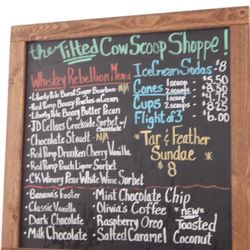 the Tilted Cow Scoop Shoppe!
Whiskey Rebellion Menu
Ice Cream Sodas $8
Cones 1 scoop
2 scoop
Cups 1 scoop
2 scoops
Flight of 3 $6.00
Liberty Pole Burnt Sugar Bourbon N/A
Red Pump Boozy Peaches n Cream
Liberty Pole Boozy Butter Pecan
JD Cellars Creekside Sorbet w/ Chocolate
Chocolate Stoudt N/A
Red Pump Drunken Cherry Vanilla
Red Pump Peach Liquor Sorbet
CK Winery Pear White Wine Sorbet
*Tar & Feather
Sundae *
$8
Bananas Foster
Classic Vanilla
Dark Chocolate
Milk Chocolate
Mint Chocolate Chip
Olivia's Coffee
Raspberry Oreo
Salted Caramel
*new*
Toasted
Coconut